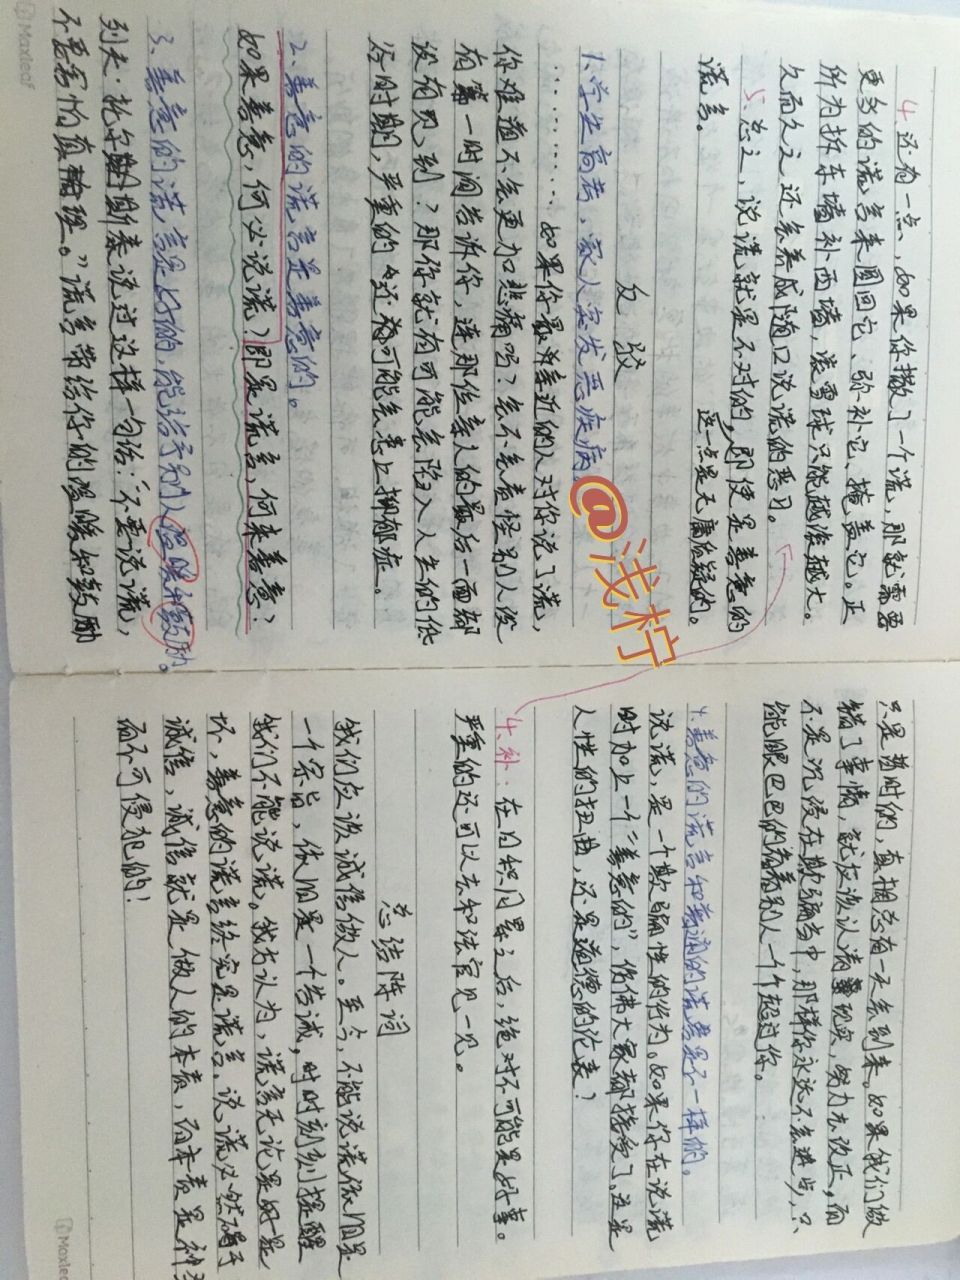 4. 还有一点，如果你撒了一个谎，那就需要
更多的谎言来圆回它、弥补它、掩盖它。正
所为拆东墙补西墙，滚雪球只能越滚越大。
久而久之还会养成随口说谎的恶习。
5. 总之，说谎就是不对的，即使是善意的
谎言。
这一点是无庸质疑的。
反驳
1. 学生高考，家人突发恶疾病
………… 如果你最亲近的人对你说了谎，
你难道不会更加悲痛吗？会不会责怪别人没
有第一时间告诉你，连那位亲人的最后一面都
没有见到？那你就有可能会陷入人生的低
谷时期，严重的还有可能会患上抑郁症。
2. 善意的谎言是善意的。
如果善意，何必说谎？即是谎言，何来善意？
3. 善意的谎言是好的，能给予别人温暖和鼓励。
列夫·托尔斯泰说过这样一句话：“不要说谎，
不要害怕真理。”谎言带给你的温暖和鼓励
只是暂时的，真相总有一天会到来。如果我们做
错了事情，就应该认清现实，努力去改正，而
不是沉浸在欺骗当中，那样你永远不会进步，只
能眼巴巴的看着别人一个个超过你。
4. 善意的谎言和普通的谎言是不一样的。
说谎，是一个欺骗性的行为。如果你在说谎
时加上一个“善意的”，仿佛大家都接受了。这是
人性的扭曲，还是道德的沦丧？
4. 补：在日积月累之后，绝对不可能是好事。
严重的还可以去和法官见一见。
总结陈词
我们应该诚信做人。至今，不能说谎依旧是
一个宗旨，依旧是一个告诫，时时刻刻提醒
我们不能说谎。我方认为，谎言无论是好是
坏，善意的谎言终究是谎言。说谎必然有于
诚信，诚信就是做人的本质，而本质是神圣
而不可侵犯的！
@浅柠
Maxleaf
Maxleaf